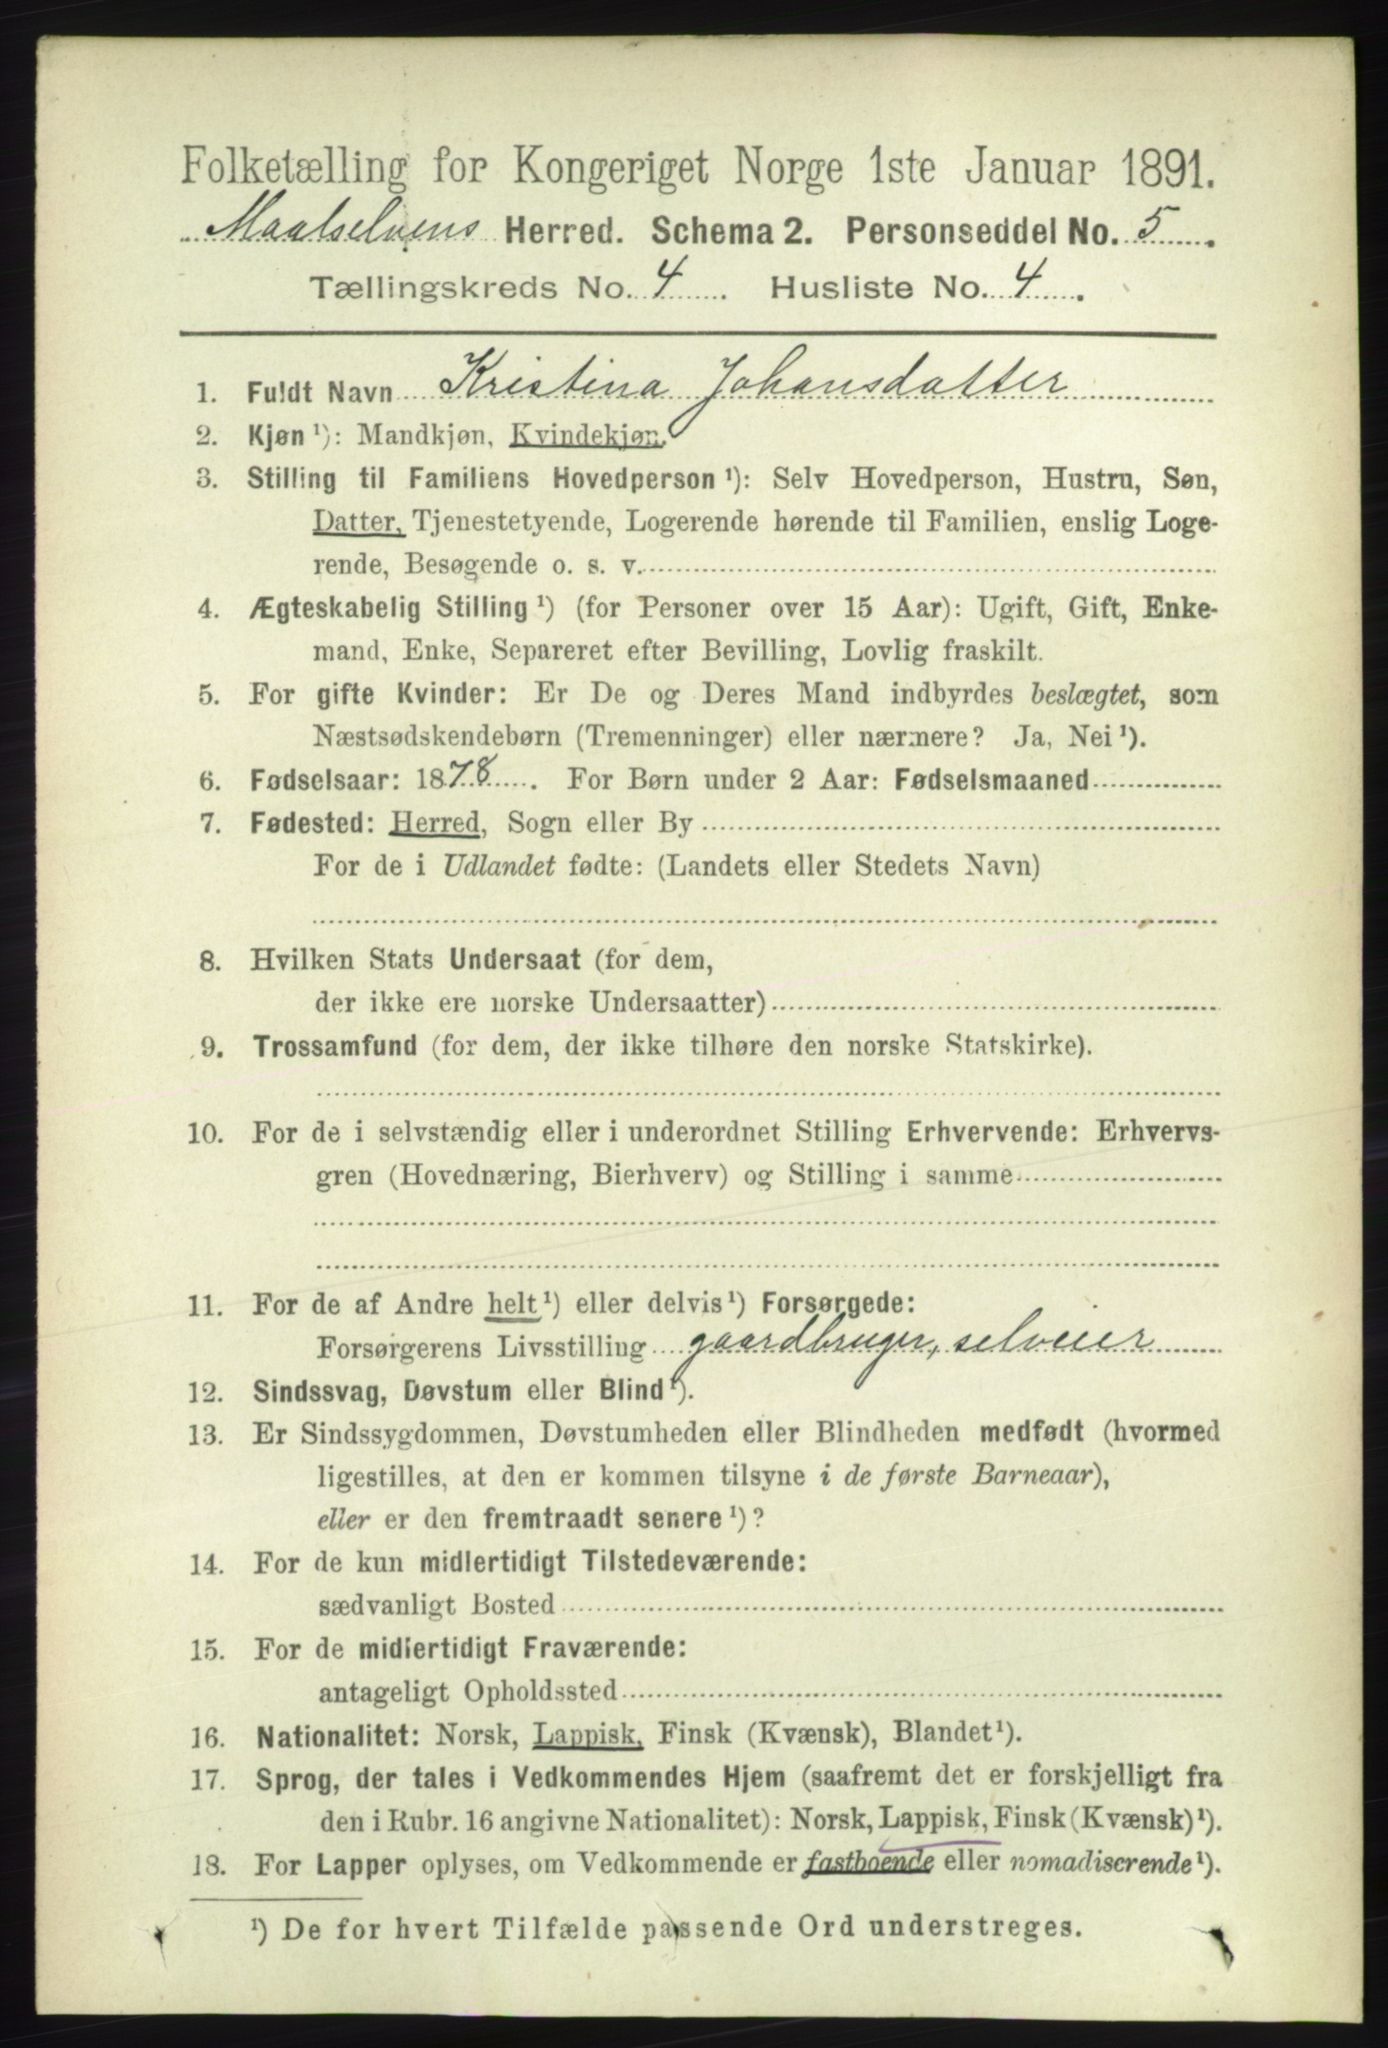 Folketælling for Kongeriget Norge 1ste Januar 1891.
Maalselvens Herred. Schema 2. Personseddel No. 5.
Tællingskreds No. 4. Husliste No. 4.
1. Fuldt Navn Kristina Johansdatter
2. Kjøn ¹): Mandkjøn, Kvindekjøn.
3. Stilling til Familiens Hovedperson ¹): Selv Hovedperson, Hustru, Søn,
Datter, Tjenestetyende, Logerende hørende til Familien, enslig Loge-
rende, Besøgende o. s. v.
4. Ægteskabelig Stilling ¹) (for Personer over 15 Aar): Ugift, Gift, Enke-
mand, Enke, Separeret efter Bevilling, Lovlig fraskilt.
5. For gifte Kvinder: Er De og Deres Mand indbyrdes beslægtet, som
Næstsødskendebørn (Tremenninger) eller nærmere? Ja, Nei ¹).
6. Fødselsaar: 1878. For Børn under 2 Aar: Fødselsmaaned
7. Fødested: Herred, Sogn eller By
For de i Udlandet fødte: (Landets eller Stedets Navn)
8. Hvilken Stats Undersaat (for dem,
der ikke ere norske Undersaatter)
9. Trossamfund (for dem, der ikke tilhøre den norske Statskirke).
10. For de i selvstændig eller i underordnet Stilling Erhvervende: Erhvervs-
gren (Hovednæring, Bierhverv) og Stilling i samme
11. For de af Andre helt ¹) eller delvis ¹) Forsørgede:
Forsørgerens Livsstilling gaardbruger, selveier
12. Sindssvag, Døvstum eller Blind ¹).
13. Er Sindssygdommen, Døvstumheden eller Blindheden medfødt (hvormed
ligestilles, at den er kommen tilsyne i de første Barneaar),
eller er den fremtraadt senere ¹)?
14. For de kun midlertidigt Tilstedeværende:
sædvanligt Bosted
15. For de midlertidigt Fraværende:
antageligt Opholdssted
16. Nationalitet: Norsk, Lappisk, Finsk (Kvænsk), Blandet ¹).
17. Sprog, der tales i Vedkommendes Hjem (saafremt det er forskjelligt fra
den i Rubr. 16 angivne Nationalitet): Norsk, Lappisk, Finsk (Kvænsk) ¹).
18. For Lapper oplyses, om Vedkommende er fastboende eller nomadiserende ¹).
¹) De for hvert Tilfælde passende Ord understreges.